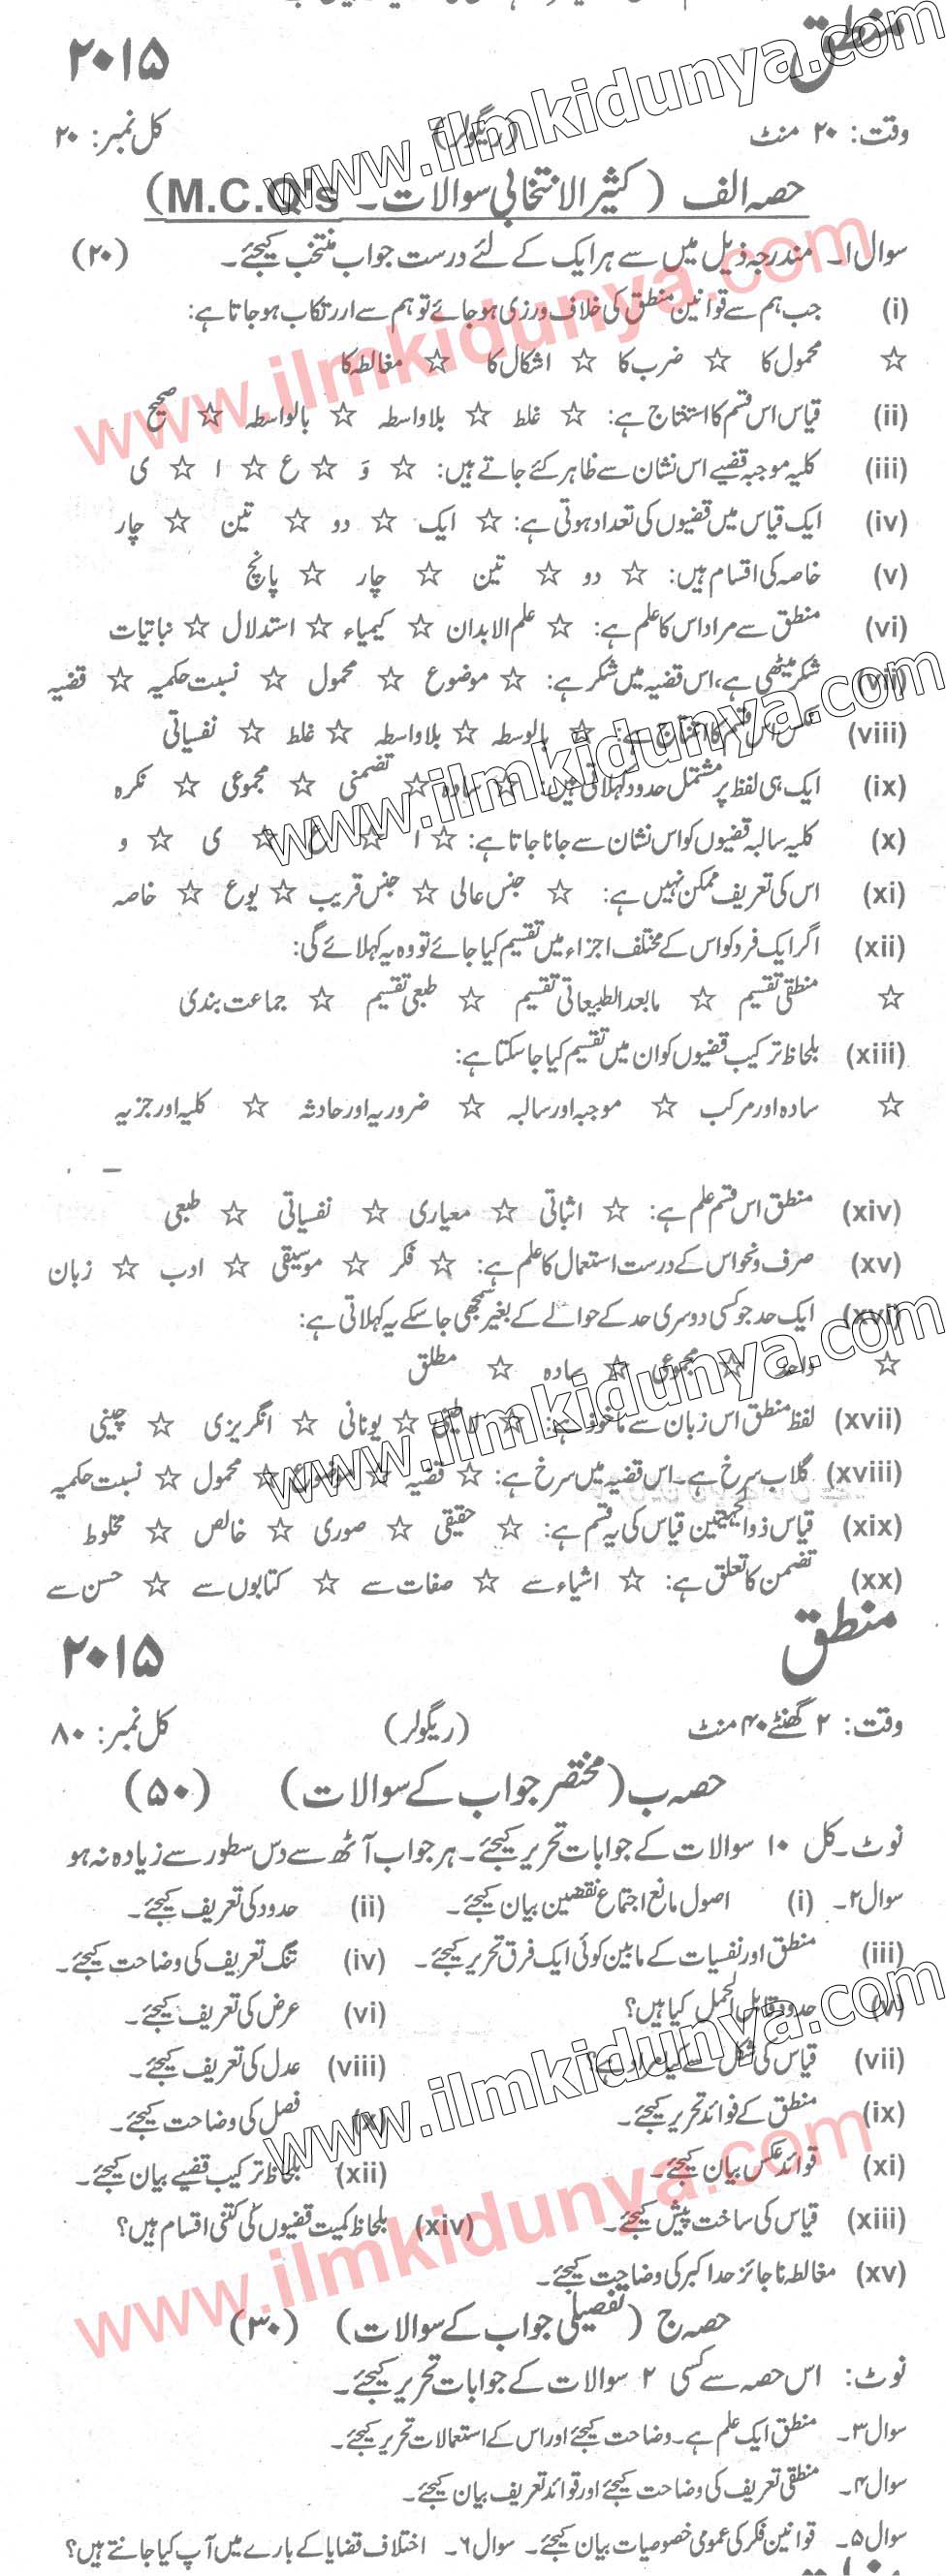 منطق ۲۰۱۵
وقت: ۲۰ منٹ (ریگولر) کل نمبر: ۲۰
حصہ الف (کثیر الانتخابی سوالات۔ M.C.Q's)
سوال ۱۔ مندرجہ ذیل میں سے ہر ایک کے لئے درست جواب منتخب کیجئے۔ (۲۰)
(i) جب ہم سے قوانین منطق کی خلاف ورزی ہو جائے تو ہم سے ارتکاب ہو جاتا ہے:
☆ محمول کا ☆ ضرب کا ☆ اشکال کا ☆ مغالطہ کا
(ii) قیاس اس قسم کا استنتاج ہے: ☆ غلط ☆ بلاواسطہ ☆ بالواسطہ ☆ صحیح
(iii) کلیہ موجبہ قضیے اس نشان سے ظاہر کئے جاتے ہیں: ☆ وَ ☆ ع ☆ ا ☆ ی
(iv) ایک قیاس میں قضیوں کی تعداد ہوتی ہے: ☆ ایک ☆ دو ☆ تین ☆ چار
(v) خاصہ کی اقسام ہیں: ☆ دو ☆ تین ☆ چار ☆ پانچ
(vi) منطق سے مراد اس کا علم ہے: ☆ علم الابدان ☆ کیمیاء ☆ استدلال ☆ نباتیات
(vii) شکر میٹھی ہے، اس قضیہ میں شکر ہے: ☆ موضوع ☆ محمول ☆ نسبت حکمیہ ☆ قضیہ
(viii) عکس اس قسم کا استنتاج ہے: ☆ بالوسطہ ☆ بلاواسطہ ☆ غلط ☆ نفسیاتی
(ix) ایک ہی لفظ پر مشتمل حدود کہلاتی ہیں: ☆ سادہ ☆ تضمنی ☆ مجموعی ☆ نکرہ
(x) کلیہ سالبہ قضیوں کو اس نشان سے جانا جاتا ہے: ☆ ا ☆ ع ☆ ی ☆ و
(xi) اس کی تعریف ممکن نہیں ہے: ☆ جنس عالی ☆ جنس قریب ☆ یوع ☆ خاصہ
(xii) اگر ایک فرد کو اس کے مختلف اجزاء میں تقسیم کیا جائے تو وہ یہ کہلائے گی:
☆ منطقی تقسیم ☆ مابعد الطبیعاتی تقسیم ☆ طبعی تقسیم ☆ جماعت بندی
(xiii) بلحاظ ترکیب قضیوں کو ان میں تقسیم کیا جا سکتا ہے:
☆ سادہ اور مرکب ☆ موجبہ اور سالبہ ☆ ضروریہ اور حادثہ ☆ کلیہ اور جزیہ
(xiv) منطق اس قسم علم ہے: ☆ اثباتی ☆ معیاری ☆ نفسیاتی ☆ طبعی
(xv) صرف و نحو اس کے درست استعمال کا علم ہے: ☆ فکر ☆ موسیقی ☆ ادب ☆ زبان
(xvi) ایک حد جو کسی دوسری حد کے حوالے کے بغیر سمجھی جا سکے یہ کہلاتی ہے:
☆ واحد ☆ مجموعی ☆ سادہ ☆ مطلق
(xvii) لفظ منطق اس زبان سے ماخوذ ہے: ☆ لاطینی ☆ یونانی ☆ انگریزی ☆ چینی
(xviii) گلاب سرخ ہے۔ اس قضیہ میں سرخ ہے: ☆ قضیہ ☆ موضوع ☆ محمول ☆ نسبت حکمیہ
(xix) قیاس ذوالجہتین قیاس کی یہ قسم ہے: ☆ حقیقی ☆ صوری ☆ خالص ☆ مخلوط
(xx) تضمن کا تعلق ہے: ☆ اشیاء سے ☆ صفات سے ☆ کتابوں سے ☆ حسن سے
منطق ۲۰۱۵
وقت: ۲ گھنٹے ۴۰ منٹ (ریگولر) کل نمبر: ۸۰
حصہ ب (مختصر جواب کے سوالات) (۵۰)
نوٹ۔ کل ۱۰ سوالات کے جوابات تحریر کیجئے۔ ہر جواب آٹھ سے دس سطور سے زیادہ نہ ہو
سوال ۲۔ (i) اصول مانع اجتماع نقضین بیان کیجئے۔ (ii) حدود کی تعریف کیجئے۔
(iii) منطق اور نفسیات کے مابین کوئی ایک فرق تحریر کیجئے۔ (iv) تنگ تعریف کی وضاحت کیجئے۔
(v) حدود قابل الحمل کیا ہیں؟ (vi) عرض کی تعریف کیجئے۔
(vii) قیاس کی شکل سے کیا مراد ہے؟ (viii) عدل کی تعریف کیجئے۔
(ix) منطق کے فوائد تحریر کیجئے۔ (x) فصل کی وضاحت کیجئے۔
(xi) قوائد عکس بیان کیجئے۔ (xii) بلحاظ ترکیب قضیے بیان کیجئے۔
(xiii) قیاس کی ساخت پیش کیجئے۔ (xiv) بلحاظ کمیت قضیوں کی کتنی اقسام ہیں؟
(xv) مغالطہ ناجائز حد اکبر کی وضاحت کیجئے۔
حصہ ج (تفصیلی جواب کے سوالات) (۳۰)
نوٹ: اس حصہ سے کسی ۲ سوالات کے جوابات تحریر کیجئے۔
سوال ۳۔ منطق ایک علم ہے۔ وضاحت کیجئے اور اس کے استعمالات تحریر کیجئے۔
سوال ۴۔ منطقی تعریف کی وضاحت کیجئے اور قوائد تعریف بیان کیجئے۔
سوال ۵۔ قوانین فکر کی عمومی خصوصیات بیان کیجئے۔ سوال ۶۔ اختلاف قضایا کے بارے میں آپ کیا جانتے ہیں؟
www.ilmkidunya.com
www.ilmkidunya.com
www.ilmkidunya.com
www.ilmkidunya.com
www.ilmkidunya.com
www.ilmkidunya.com